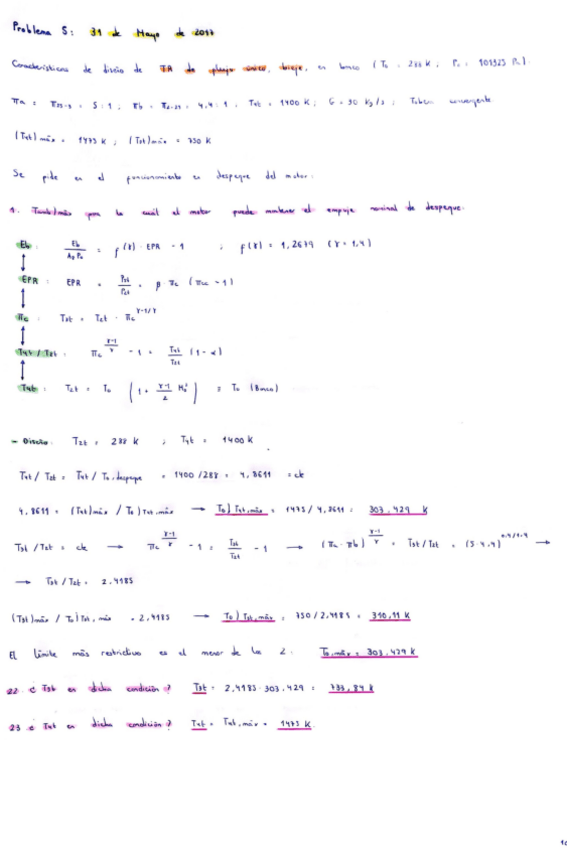 Problema 5: 31 de Mayo de 2017
Características de diseño de TR de flujo único, bieje, en banco (T₀ = 288 K ; P₀ = 101325 Pa):
πa = π25-3 = 5:1 ; πb = π2-25 = 4,4:1 ; T4t = 1400 K ; G = 90 kg/s ; Tobera convergente
(T4t)máx = 1475 K ; (T3t)máx = 750 K
Se pide en el funcionamiento en despegue del motor:
1. Tamb/máx para la cual el motor puede mantener el empuje nominal de despegue.
Eb : Eb / A₈P₀ = f(γ) · EPR - 1 ; f(γ) = 1,2679 (γ = 1,4)
EPR : EPR = P5t / P2t = β · πc (πc - 1)
πc : T3t = T2t · πc^γ-1/γ
T4t/T2t : πc^γ-1/γ - 1 = T4t/T2t (1 - α)
T4t : T2t = T₀ (1 + γ-1/2 M₀²) = T₀ (Banco)
- Diseño: T2t = 288 K ; T4t = 1400 K
T4t/T2t = T4t/T₀,despegue = 1400/288 = 4,8611 = cte
4,8611 = (T4t)máx / T₀)T4t,máx → T₀)T4t,máx = 1475/4,8611 = 303,429 K
T3t/T2t = cte → πc^γ-1/γ - 1 = T3t/T2t - 1 → (πa · πb)^γ-1/γ = T3t/T2t = (5·4,4)^0,4/1,4 →
→ T3t/T2t = 2,4185
(T3t)máx / T₀)T3t,máx = 2,4185 → T₀)T3t,máx = 750/2,4185 = 310,11 K
El límite más restrictivo es el menor de los 2: T₀,máx = 303,429 K
22. ¿ T3t en dicha condición? T3t = 2,4185 · 303,429 = 733,84 K
23. ¿ T4t en dicha condición? T4t = T4t,máx = 1475 K